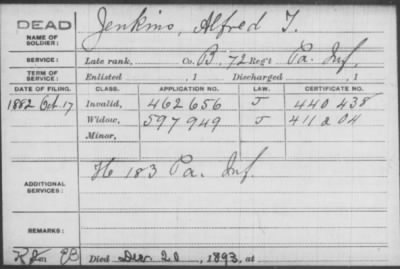 DEAD
NAME OF SOLDIER: Jenkins, Alfred T.
SERVICE: Late rank, Co. B, 72 Reg't Pa. Inf.
TERM OF SERVICE: Enlisted , 1 Discharged , 1
DATE OF FILING. CLASS. APPLICATION NO. LAW. CERTIFICATE NO.
1882 Oct. 17 Invalid, 462656 J 440438
Widow, 597949 J 411204
Minor,
ADDITIONAL SERVICES: H 183 Pa. Inf.
REMARKS:
Died Dec. 20, 1893, at